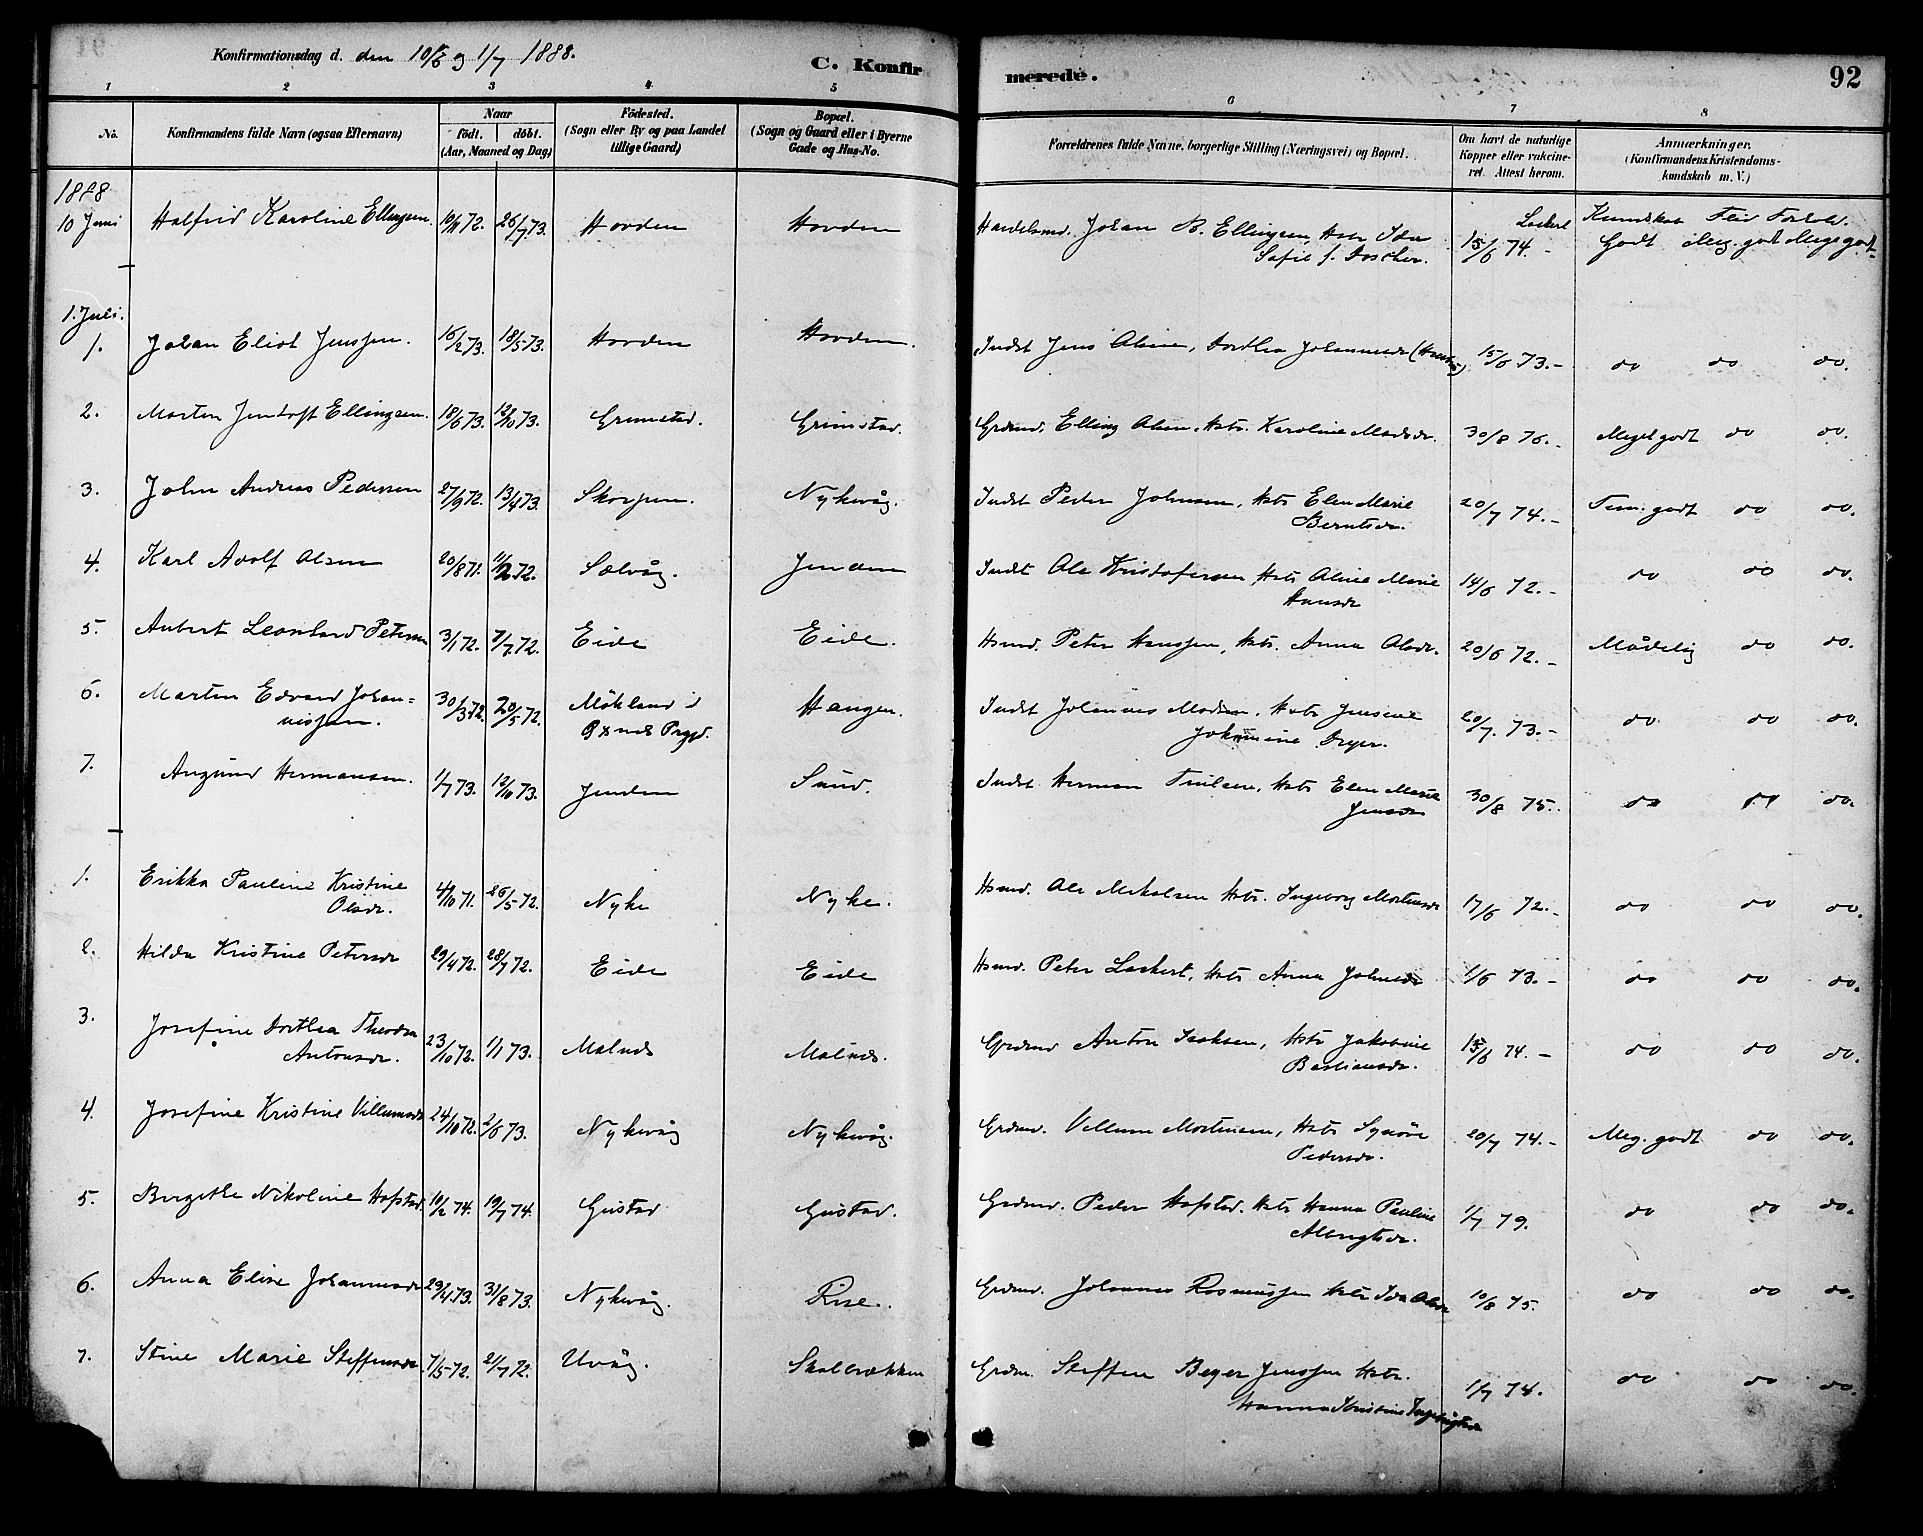 Konfirmationsdag d. den 10/6 og 1/7 1888.
C. Konfir
merede.
92
1 2 3 4 5 6 7 8
No.
Konfirmandens fulde Navn (ogsaa Efternavn)
Naar
födt. döbt.
(Aar, Maaned og Dag)
Födested.
(Sogn eller By og paa Landet
tillige Gaard)
Bopæl.
(Sogn og Gaard eller i Byerne
Gade og Hus-No.
Forældrenes fulde Navne, borgerlige Stilling (Næringsvei) og Bopæl.
Om havt de naturlige
Kopper eller vakcine-
ret. Attest herom.
Anmærkninger.
(Konfirmandens Kristendoms-
kundskab m. V.)
1888
10 Juni Halfrid Karoline Ellingsen 10/11 72. 26/7 73. Hovden Hovden Handelsmd. Johan B. Ellingsen, Hstr Ida
Sofie f. Doscher. 15/6 74. - Kundskab Flid Forhold.
Godt Meg. godt Meget godt
1. Juli.
1. Johan Eliot Jenssen. 16/2 73. 18/5 73. Hovden Hovden. Indst Jens Olsen, Dorthea Johannesdr 15/6 73. - do do do.
2. Morten Jentoft Ellingsen. 18/6 73. 12/10 73. Grimstad. Grimstad. Grdmd. Elling Olsen, Hstr. Karoline Madsdr. 30/8 76. - Meget godt do do.
3. John Andreas Pedersen 27/9 72. 13/4 73. Skorpen. Nykvåg. Indst Peder Johnsen, Hstr Elen Marie
Berntsdr. 20/7 74. - Tem. godt do do.
4. Karl Adolf Olsen 20/8 71. 11/2 72. Sælvåg. Jenden Indst Ole Kristofersen Hstr Oline Marie
Hansdr 14/6 72. - do do do.
5. Anbert Leonhard Petersen 3/1 72. 7/7 72. Eide Eide. Hsmd. Peter Hanssen, Hstr. Anna Olsdr. 20/6 72. - Mådelig do do.
6. Martin Edvard Johan=
nissen. 30/3 72. 20/5 72. Mökland i
Öxnes Prgjd. Haugen. Indst Johannes Madsen, Hstr Jensine
Johannine Dreyer. 20/7. 73. - do do do.
7. Angund Hermansen. 1/7 73. 12/10 73. Jenden Sund. Indst Herman Trulsen, Hstr Elen Marie
Jensdr 30/8 75. - do do do.
1. Erikka Pauline Kristine
Olsdr. 4/10 71. 26/5 72. Nyke Nyke. Hsmd. Ole Mikalsen Hstr. Ingeborg Mortensdr 17/6 72. - do do do.
2. Hilda Kristine Petersdr 29/4 72. 28/7 72. Eide Eide Hsmd. Peter Lockert, Hstr Anna Johnsdr 1/6 73. - do do do.
3. Josefine Dorthea Theodora
Antonsdr. 23/10 72. 1/1 73. Malnes Malnes. Grdmd Anton Isaksen, Hstr Jakobine
Bastiansdr. 15/6 74. - do do do.
4. Josefine Kristine Villumsdr 24/10 72. 2/6 73. Nykvåg Nykvåg. Grdmd. Villum Mortensen, Hstr Synöve
Pedersdr. 20/7 74. - Meg. godt do do.
5. Bergethe Nikoline Hofstad. 10/2 74. 19/7 74. Gustad Gustad. Grdmd. Peder Hofstad. Hstr Hanna Pauline
Albrigtsdr. 1/7 79. do do do.
6. Anna Elise Johannesdr 29/4 73. 31/8 73. Nykvåg. Rise. Grdmd. Johannes Rasmussen Hstr Ida Olsdr 10/8 75. do do do.
7. Stine Marie Steffensdr 7/5 72. 21/7 72. Uvåg. Skalbrækken Grdm. Steffen Beyer Jenssen Hstr.
Hanna Kristine Ingebrigtsdr 1/7 74. do do do.